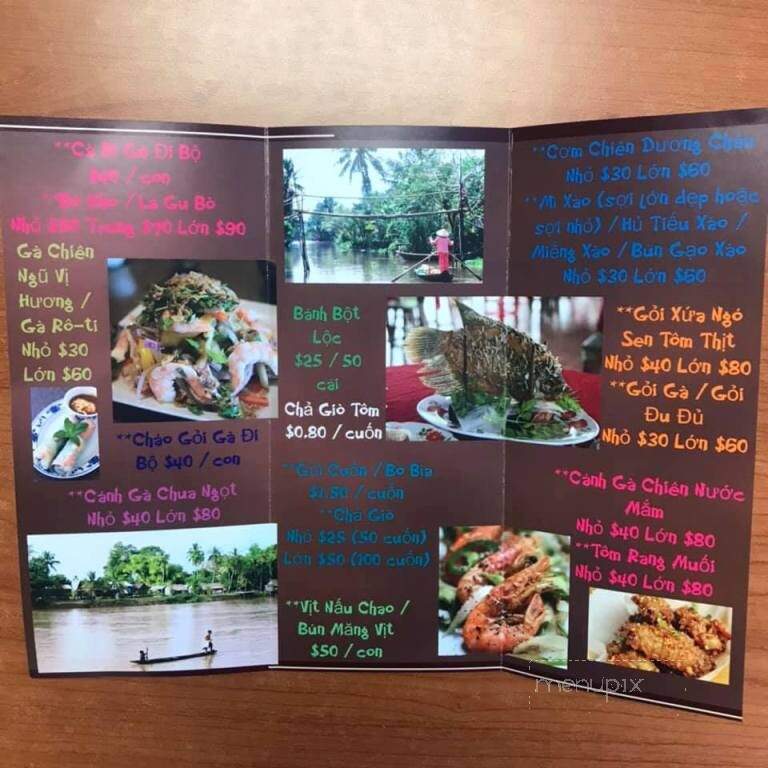 **Cà Ri Gà Đi Bộ
/ con
/ La Gu Bò
Nhỏ Trung $70 Lớn $90
Gà Chiên
Ngũ Vị
Hương /
Gà Rô-ti
Nhỏ $30
Lớn $60
**Cháo Gỏi Gà Đi
Bộ $40 / con
**Cánh Gà Chua Ngọt
Nhỏ $40 Lớn $80
Bánh Bột
Lộc
$25 / 50
cái
Chả Giò Tôm
$0.80 / cuốn
**Gỏi Cuốn / Bò Bía
$1.50 / cuốn
**Chả Giò
Nhỏ $25 (50 cuốn)
Lớn $50 (100 cuốn)
**Vịt Nấu Chao /
Bún Măng Vịt
$50 / con
**Cơm Chiên Dương Châu
Nhỏ $30 Lớn $60
**Mì Xào (sợi lớn dẹp hoặc
sợi nhỏ) / Hủ Tiếu Xào /
Miếng Xào / Bún Gạo Xào
Nhỏ $30 Lớn $60
**Gỏi Xứa Ngó
Sen Tôm Thịt
Nhỏ $40 Lớn $80
**Gỏi Gà / Gỏi
Đu Đủ
Nhỏ $30 Lớn $60
**Cánh Gà Chiên Nước
Mắm
Nhỏ $40 Lớn $80
**Tôm Rang Muối
Nhỏ $40 Lớn $80
menupix